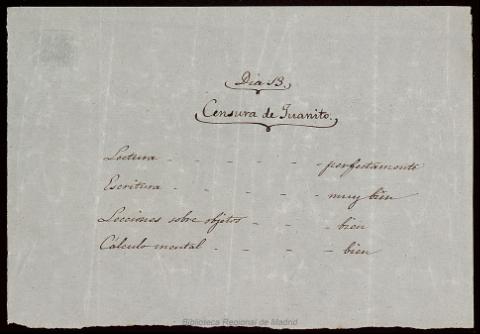 Dia 13.
Censura de Juanito.
Lectura - - - - - - perfectamente
Escritura - - - - - - muy bien
Lecciones sobre objetos - - - - bien
Cálculo mental - - - - - bien
Biblioteca Regional de Madrid